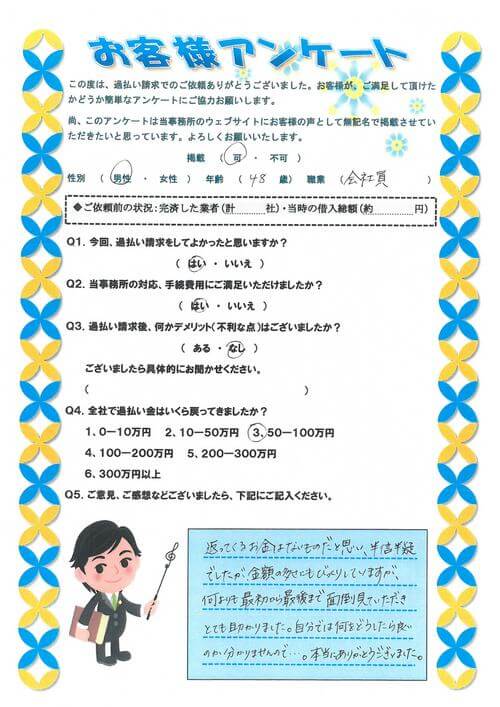 お客様アンケート
この度は、過払い請求でのご依頼ありがとうございました。お客様が、ご満足して頂けた
かどうか簡単なアンケートにご協力お願いします。
尚、このアンケートは当事務所のウェブサイトにお客様の声として無記名で掲載させてい
ただきたいと思っています。よろしくお願いいたします。
掲載 ( 可 ・ 不可 )
性別 ( 男性 ・ 女性 ) 年齢 ( 48 歳) 職業 ( 会社員 )
◆ご依頼前の状況:完済した業者(計 社)・当時の借入総額(約 円)
Q1. 今回、過払い請求をしてよかったと思いますか?
( はい ・ いいえ )
Q2. 当事務所の対応、手続費用にご満足いただけましたか?
( はい ・ いいえ )
Q3. 過払い請求後、何かデメリット(不利な点)はございましたか?
( ある ・ なし )
ございましたら具体的にお聞かせください。
( )
Q4. 全社で過払い金はいくら戻ってきましたか?
1、0-10万円 2、10-50万円 3、50-100万円
4、100-200万円 5、200-300万円
6、300万円以上
Q5. ご意見、ご感想などございましたら、下記にご記入ください。
返ってくるお金はないものだと思い、半信半疑
でしたが、金額の多さにもびっくりしていますが、
何よりも最初から最後まで面倒見ていただき
とても助かりました。自分では何をどうしたら良い
のか分かりませんので…。本当にありがとうございました。